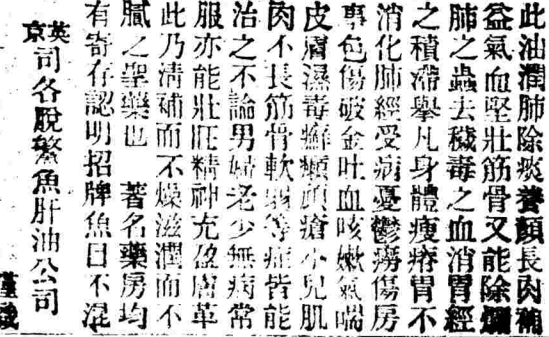 此油潤肺除痰養顏長肉補
益氣血堅壯筋骨又能除爛
肺之蟲去穢毒之血消胃經
之積滯舉凡身體瘦瘠胃不
消化肺經受病憂鬱癆傷房
事色傷破金吐血咳嗽氣喘
皮膚濕毒癬癩頭瘡小兒肌
肉不長筋骨軟弱等症皆能
治之不論男婦老少無病常
服亦能壯旺精神充盈膚革
此乃淸補而不燥滋潤而不
膩之聖藥也 著名藥房均
有寄存認明招牌魚目不混
英京司各脫鰵魚肝油公司
謹啟